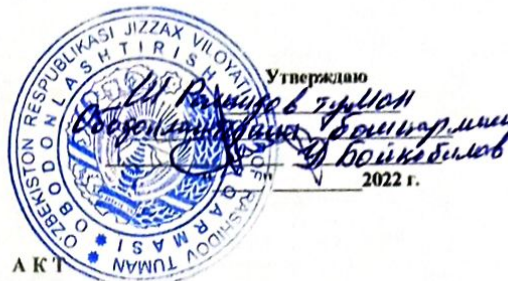 O'ZBEKISTON RESPUBLIKASI JIZZAX VILOYATI
SHAROF RASHIDOV TUMAN
OBODONLASHTIRISH BOSHQARMASI
Утверждаю
Ш Рашидов туман
Ободонлаштириш бошқармаси
Бойкобилов
2022 г.
А К Т